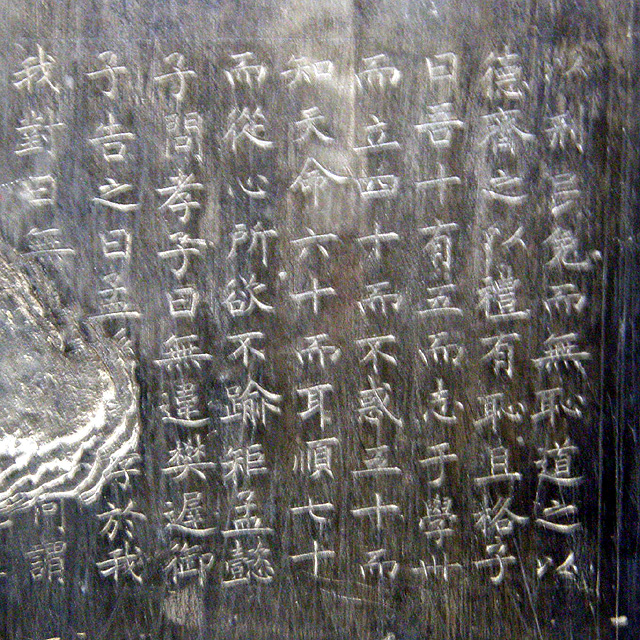 以刑民免而無恥道之以
德齊之以禮有恥且格子
曰吾十有五而志于學卅
而立四十而不惑五十而
知天命六十而耳順七十
而從心所欲不踰矩孟懿
子問孝子曰無違樊遲御
子告之曰孟孝於我
我對曰無何謂